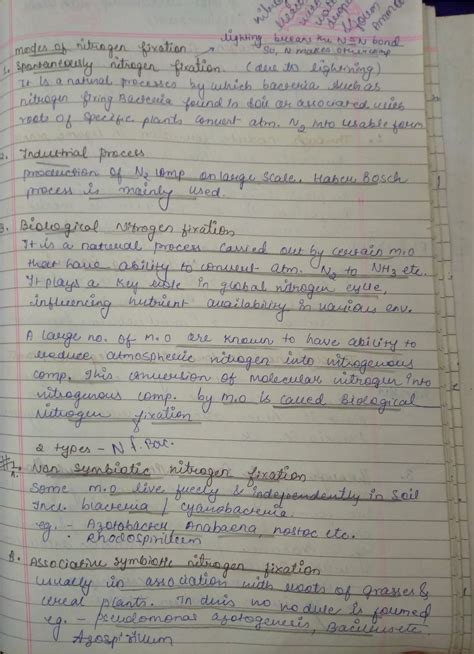 modes of nitrogen fixation → lighting breaks the N≡N bond
So, N makes other comp
1. Spontaneously nitrogen fixation. (due to lightning)
It is a natural processes by which bacteria such as
nitrogen fixing Bacteria found in soil or associated with
roots of specific plants convert atm. N2 into usable form
2. Industrial process
production of N2 comp on large scale. Haber Bosch
process is mainly used.
3. Biological Nitrogen fixation
It is a natural process carried out by certain m.o
that have ability to convert atm. N2 to NH3 etc.
It plays a key role in global nitrogen cycle,
influencing nutrient availability in various env.
A large no. of m.o are known to have ability to
reduce atmospheric nitrogen into nitrogenous
comp. This conversion of molecular nitrogen into
nitrogenous comp. by m.o is called biological
nitrogen fixation
2 types - N f. Bac.
A. Non symbiotic nitrogen fixation
Some m.o live freely & independently in soil
Incl. bacteria / cyanobacteria
eg. - Azotobacter, Anabaena, nostoc etc.
Rhodospirillum
B. Associative symbiotic nitrogen fixation
usually in association with roots of grasses &
cereal plants. In this no nodule is formed
eg. - pseudomonas azotogenesis, Bacillus etc
Azospirillum